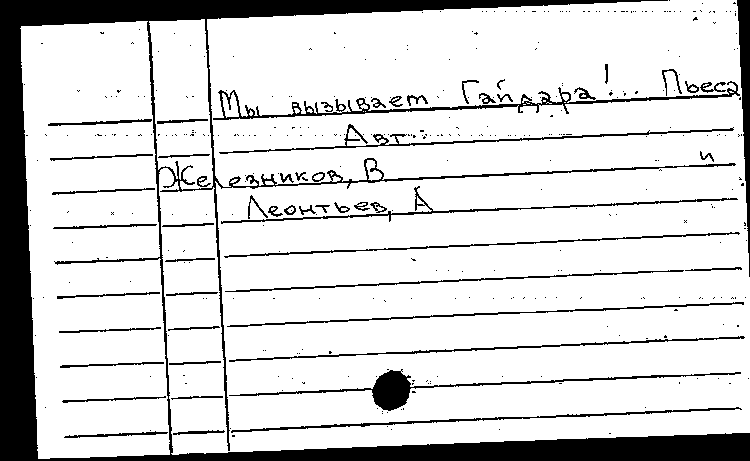 Мы вызывает Гайдара!... Пьеса
Авт.:
Железников, В и
Леонтьев, А